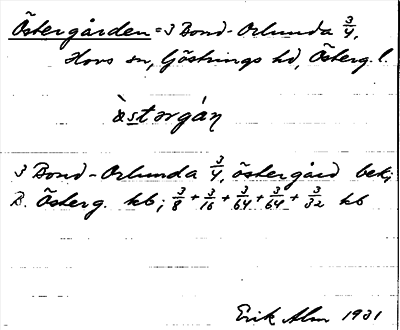 Östergården = 3 Bond-Orlunda 3/4,
Hovs sn, Göstrings hd, Österg. l.
östərgáɳ
3 Bond-Orlunda 3/4, östergård bek;
B. Österg. kb; 3/8 + 3/16 + 3/64 + 3/64 + 3/32 kb
Erik Alm 1931